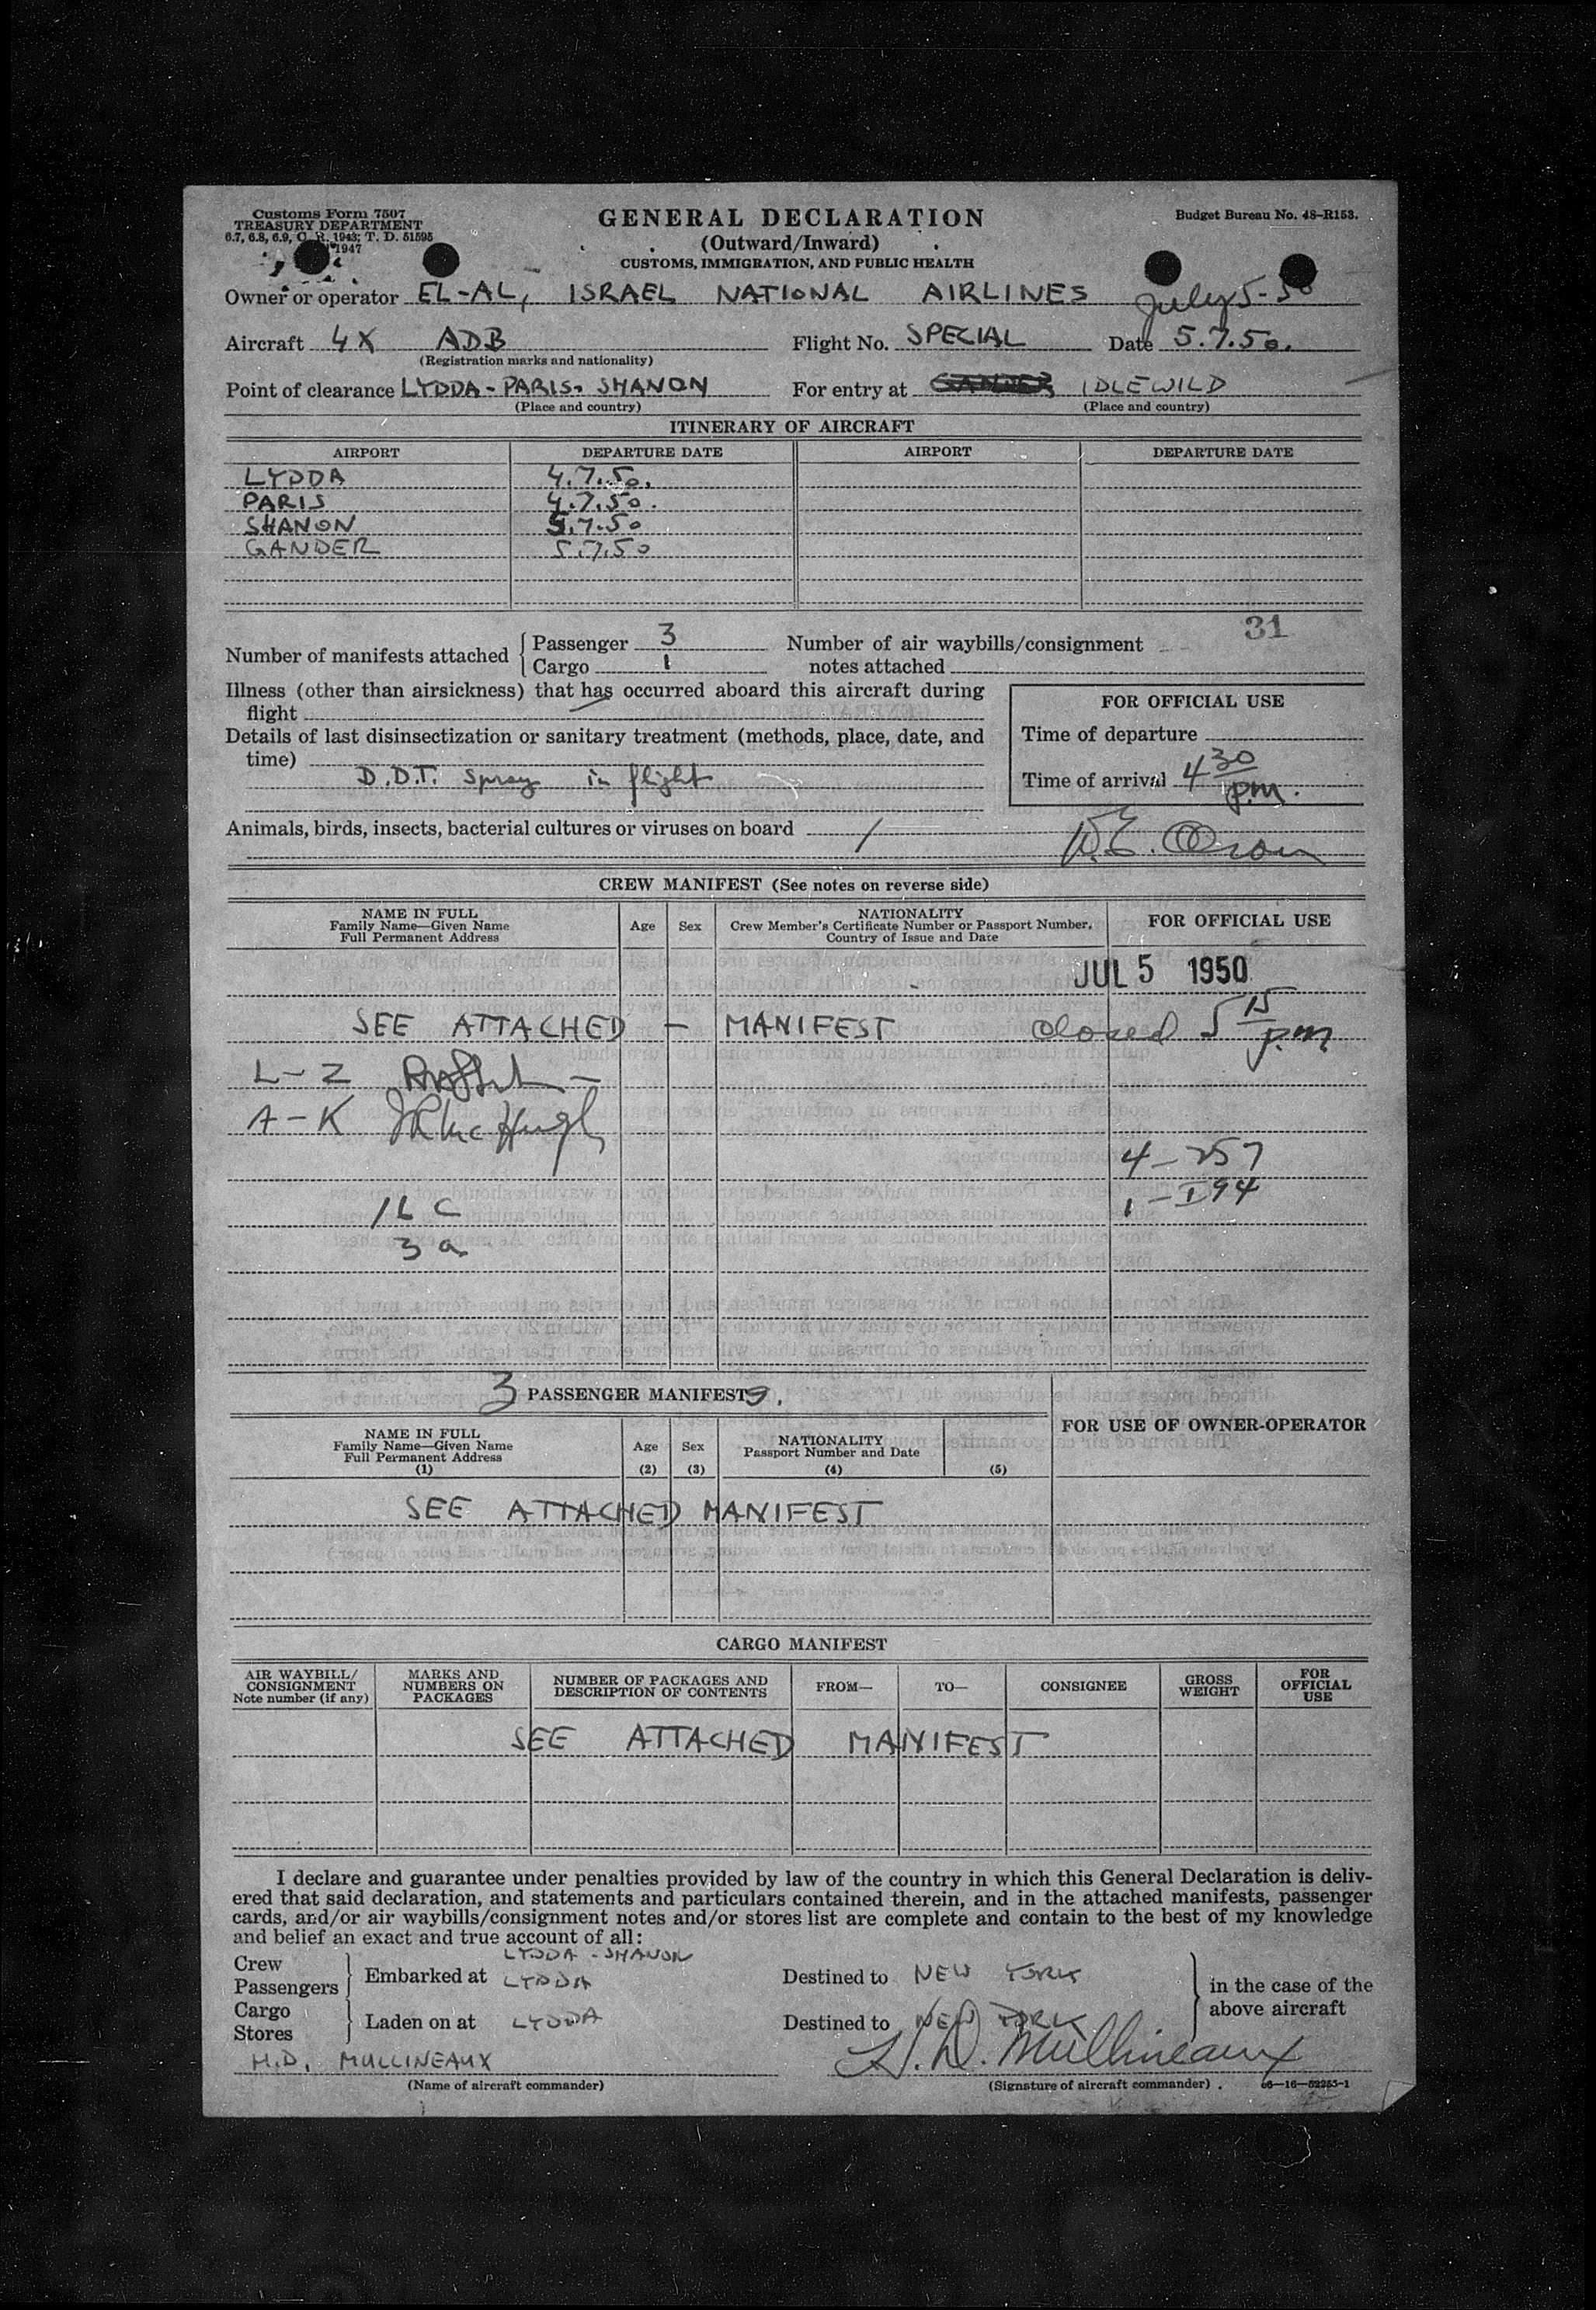 Customs Form 7507
TREASURY DEPARTMENT
6.7, 6.8, 6.9, C. R. 1943; T. D. 51595
1947
GENERAL DECLARATION
(Outward/Inward)
CUSTOMS, IMMIGRATION, AND PUBLIC HEALTH
Budget Bureau No. 48-R153.
Owner or operator EL-AL, ISRAEL NATIONAL AIRLINES July 5-50
Aircraft 4X ADB Flight No. SPECIAL Date 5.7.50.
(Registration marks and nationality)
Point of clearance LYDDA - PARIS - SHANON For entry at GANDER IDLEWILD
(Place and country) (Place and country)
ITINERARY OF AIRCRAFT
AIRPORT DEPARTURE DATE AIRPORT DEPARTURE DATE
LYDDA 4.7.50.
PARIS 4.7.50.
SHANON 5.7.50
GANDER 5.7.50
31
Number of manifests attached { Passenger 3 Number of air waybills/consignment
Cargo 1 notes attached
Illness (other than airsickness) that has occurred aboard this aircraft during
flight
Details of last disinsectization or sanitary treatment (methods, place, date, and
time)
D.D.T. Spray in flight
FOR OFFICIAL USE
Time of departure
Time of arrival 4 30 p.m.
Animals, birds, insects, bacterial cultures or viruses on board /
CREW MANIFEST (See notes on reverse side)
NAME IN FULL
Family Name—Given Name
Full Permanent Address
Age Sex
NATIONALITY
Crew Member's Certificate Number or Passport Number,
Country of Issue and Date
FOR OFFICIAL USE
JUL 5 1950
SEE ATTACHED - MANIFEST closed 5 15 p.m
L - Z
A - K
4 - 257
1 - I94
16 C
3 a
3 PASSENGER MANIFESTS.
FOR USE OF OWNER-OPERATOR
NAME IN FULL
Family Name—Given Name
Full Permanent Address
(1)
Age
(2)
Sex
(3)
NATIONALITY
Passport Number and Date
(4) (5)
SEE ATTACHED MANIFEST
CARGO MANIFEST
AIR WAYBILL/
CONSIGNMENT
Note number (if any)
MARKS AND
NUMBERS ON
PACKAGES
NUMBER OF PACKAGES AND
DESCRIPTION OF CONTENTS
FROM— TO— CONSIGNEE
GROSS
WEIGHT
FOR
OFFICIAL
USE
SEE ATTACHED MANIFEST
I declare and guarantee under penalties provided by law of the country in which this General Declaration is deliv-
ered that said declaration, and statements and particulars contained therein, and in the attached manifests, passenger
cards, and/or air waybills/consignment notes and/or stores list are complete and contain to the best of my knowledge
and belief an exact and true account of all:
Crew
Passengers } Embarked at LYDDA - SHANON LYDDA Destined to NEW YORK
Cargo
Stores } Laden on at LYDDA Destined to NEW YORK
} in the case of the
above aircraft
H.D. MULLINEAUX H. D. Mullineaux
(Name of aircraft commander) (Signature of aircraft commander) 16—52253-1